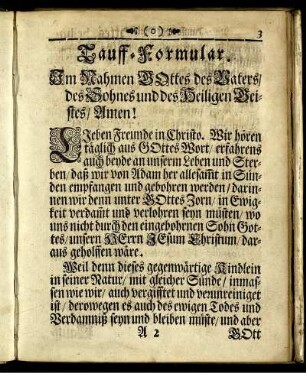 (o) 3
Tauff-Formular.
Im Nahmen GOttes des Vaters/
des Sohnes und des Heiligen Gei-
stes/ Amen!
LIeben Freunde in Christo. Wir hören
täglich aus GOttes Wort/ erfahrens
auch beyde an unserm Leben und Ster-
ben/ daß wir von Adam her allesamt in Sün-
den empfangen und gebohren werden/ darin-
nen wir denn unter GOttes Zorn/ in Ewig-
keit verdamt und verlohren seyn müsten/ wo
uns nicht durch den eingebohrnen Sohn Got-
tes/ unsern HErrn JEsum Christum/ dar-
aus geholffen wäre.
Weil denn dieses gegenwärtige Kindlein
in seiner Natur/ mit gleicher Sünde/ inmas-
sen wie wir/ auch vergifftet und verunreiniget
ist/ derowegen es auch des ewigen Todes und
Verdamnuß seyn und bleiben müste/ und aber
A 2 GOtt